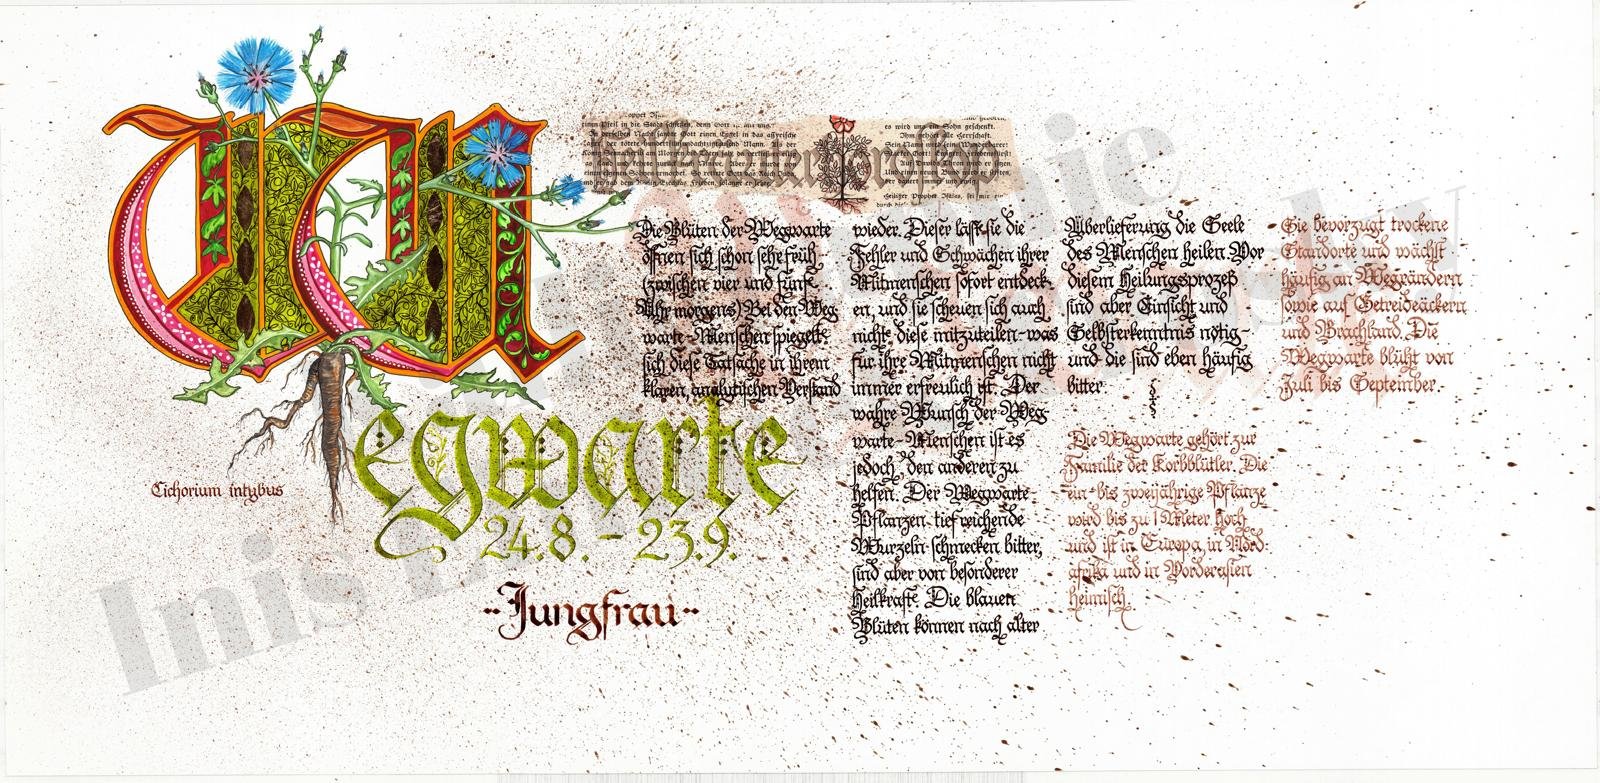 Wegwarte
24.8. - 23.9.
Jungfrau
Cichorium intybus
Die Blüten der Wegwarte
öffnen sich schon sehr früh
(zwischen vier und fünf
Uhr morgens) Bei den Weg
warte-Menschen spiegelt
sich diese Tatsache in ihrem
klaren, analytischen Verstand
wieder. Dieser lässt sie die
Fehler und Schwächen ihrer
Mitmenschen sofort entdeck-
en, und sie scheuen sich auch
nicht, diese mitzuteilen - was
für ihre Mitmenschen nicht
immer erfreulich ist. Der
wahre Wunsch der Weg
warte-Menschen ist es
jedoch, den anderen zu
helfen. Der Wegwarte-
Pflanzen tief reichende
Wurzeln schmecken bitter,
sind aber von besonderer
Heilkraft. Die blauen
Blüten können nach alter
Überlieferung die Seele
des Menschen heilen. Vor
diesem Heilungsprozeß
sind aber Einsicht und
Selbsterkenntnis nötig -
und die sind eben häufig
bitter.
Die Wegwarte gehört zur
Familie der Korbblütler. Die
ein- bis zweijährige Pflanze
wird bis zu 1 Meter hoch
und ist in Europa, in Nord-
afrika und in Vorderasien
heimisch.
Sie bevorzugt trockene
Standorte und wächst
häufig an Wegrändern
sowie auf Getreideäckern
und Brachland. Die
Wegwarte blüht von
Juli bis September.